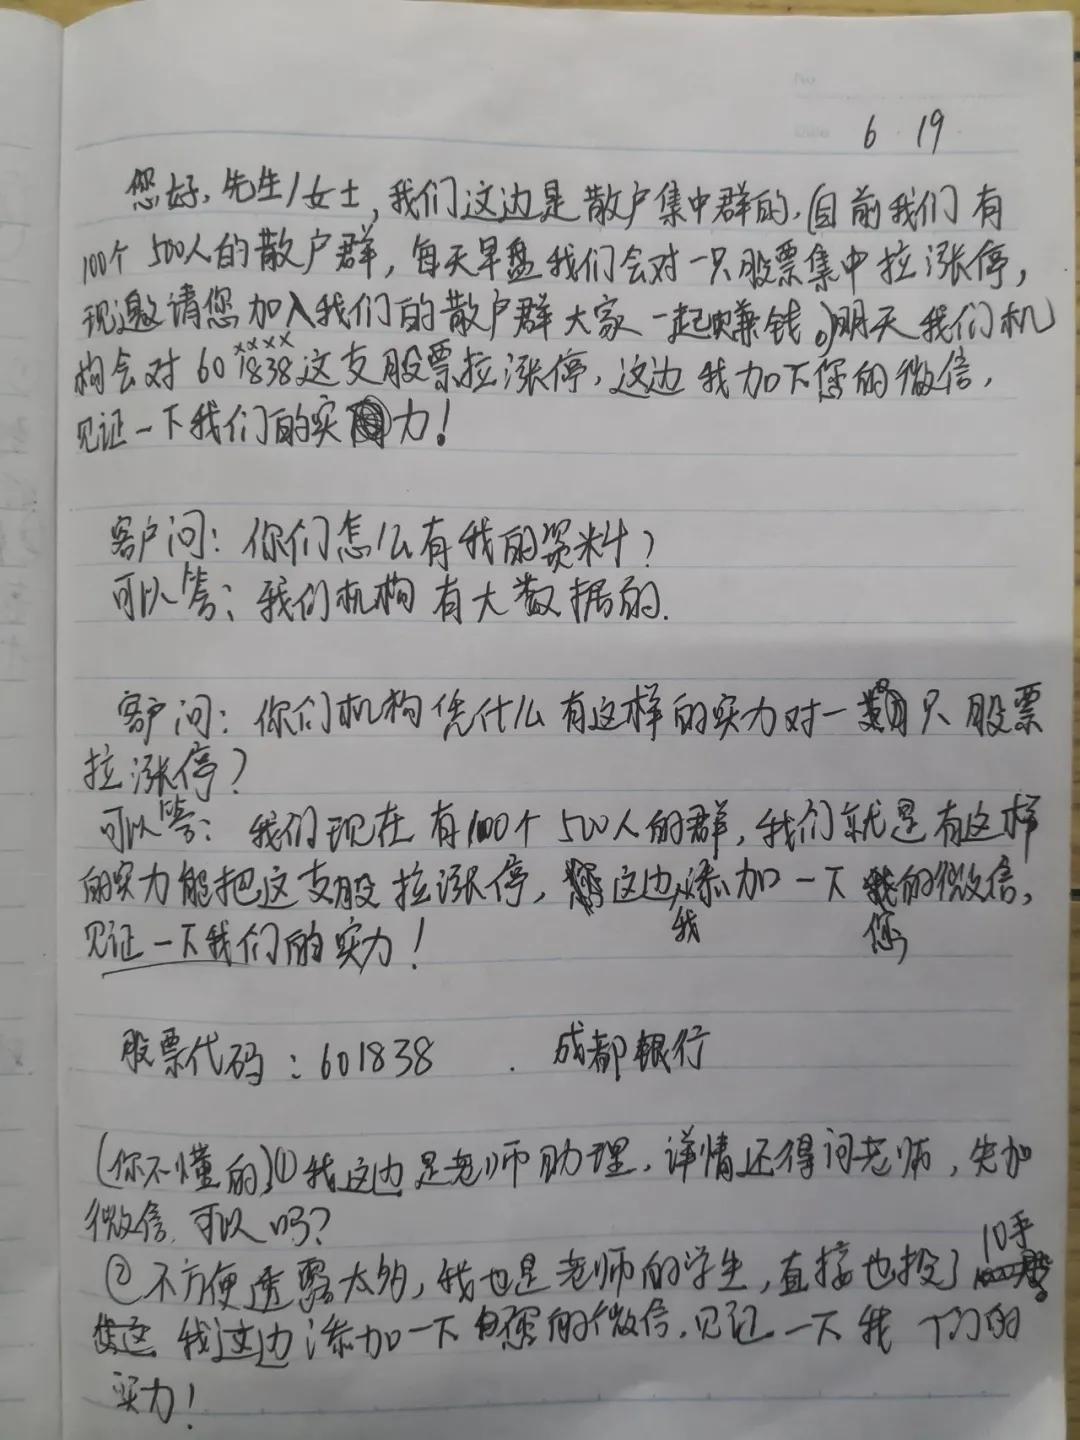 No
Date 6 19
您好,先生/女士,我们这边是散户集中群的,目前我们有
100个500人的散户群,每天早盘我们会对一只股票集中拉涨停,
现邀请您加入我们的散户群大家一起赚钱。明天我们机
xxxx
构会对601838这支股票拉涨停,这边我加下您的微信,
见证一下我们的实力!
客户问:你们怎么有我的资料?
可以答:我们机构有大数据的.
客户问:你们机构凭什么有这样的实力对一只股票
拉涨停?
可以答:我们现在有100个500人的群,我们就是有这样
的实力能把这支股拉涨停,这边添加一下的微信,
我 您
见证一下我们的实力!
股票代码:601838 . 成都银行
(你不懂的)①我这边是老师助理,详情还得问老师,先加
微信,可以吗?
10手
②不方便透露太多,我也是老师的学生,直接也投了
我这边添加一下您的微信,见证一下我们的
实力!